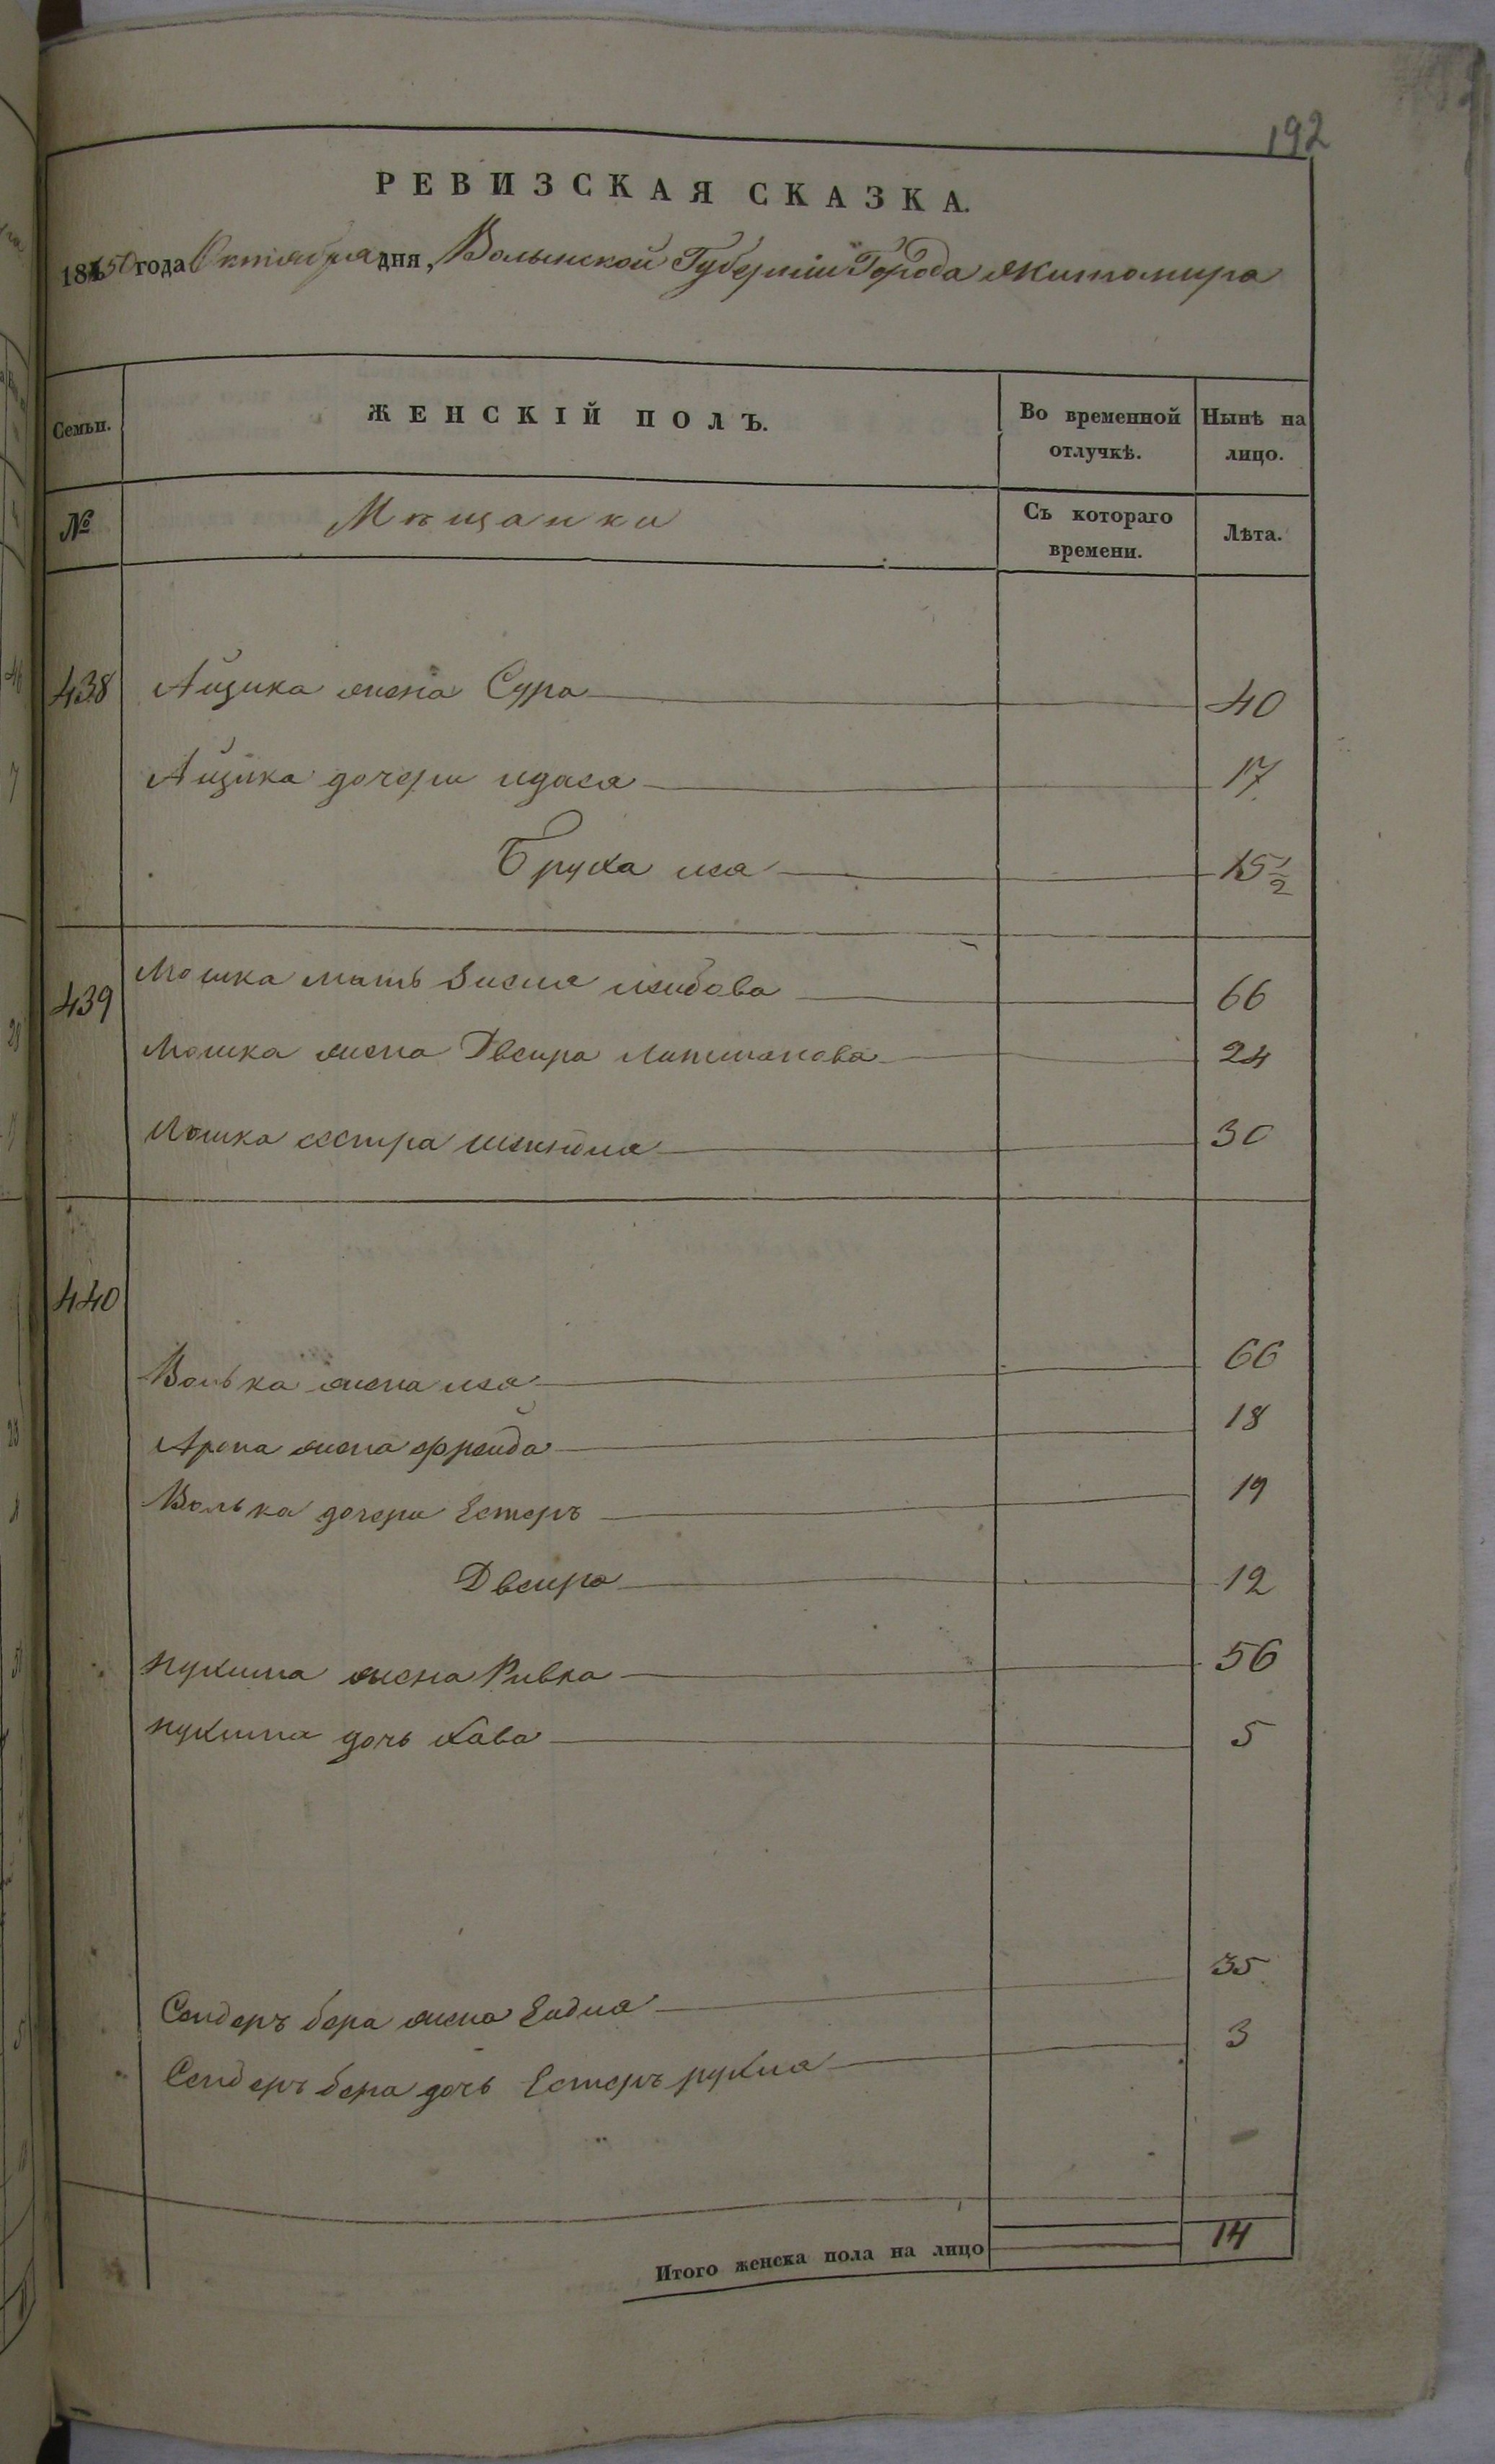 192
РЕВИЗСКАЯ СКАЗКА.
1850 года Октября дня, Волынской Губернии Города Житомира
Семьи. ЖЕНСКІЙ ПОЛЪ. Во временной отлучкѣ. Нынѣ на лицо.
№ Мѣщанки Съ котораго времени. Лѣта.
438 Айцика жена Сура 40
Айцика дочери 17
Бруха лея 15 1/2
439 Мошка мать лейбова 66
Мошка жена Двейра Липмановa 24
Мошка сестра шейндля 30
440
Волька жена лея 66
Арона жена фрейда 18
Волька дочери Естеръ 19
Двейра 12
нухима жена Ривка 56
нухима дочь хава 5
Сендеръ бера жена Ейдля 35
Сендеръ бера дочь Естеръ рухля 3
Итого женска пола на лицо 14